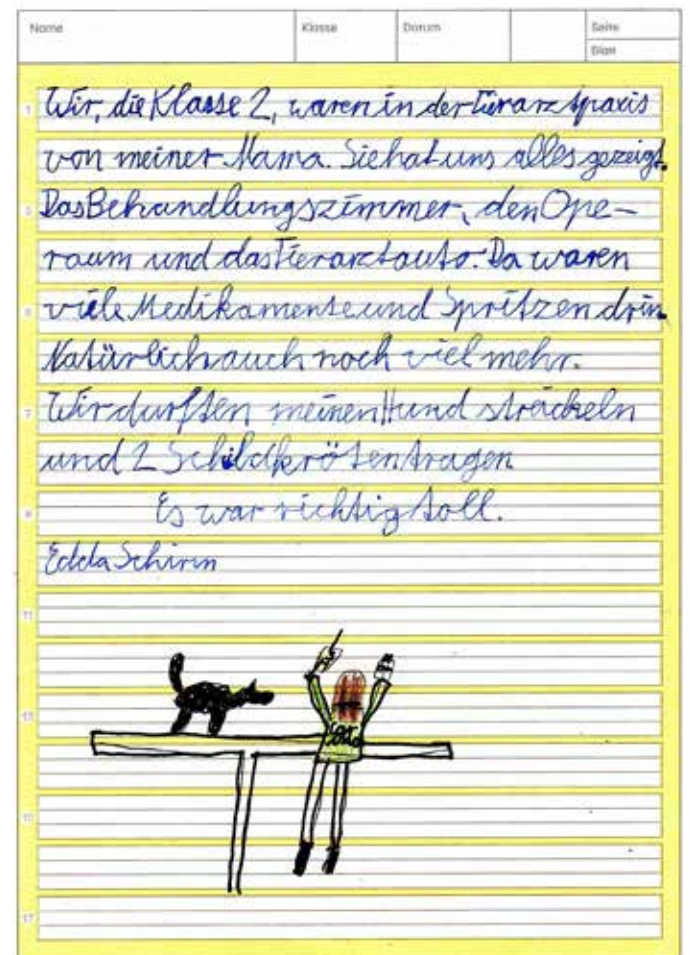 Name Klasse Datum Seite
Blatt
1 Wir, die Klasse 2, waren in der Tierarztpraxis
von meiner Mama. Sie hat uns alles gezeigt.
3 Das Behandlungszimmer, den Ope-
raum und das Tierarztauto. Da waren
5 viele Medikamente und Spritzen drin.
Natürlich auch noch viel mehr.
7 Wir durften meinen Hund sträicheln
und 2 Schildkröten tragen
9 Es war richtig toll.
Edda Schirm
11
13
15
17